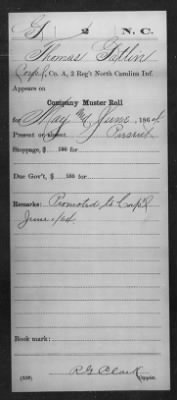 G 2 N.C.
Thomas Gatlin
Corp'l, Co. A, 2 Reg't North Carolina Inf.
Appears on
Company Muster Roll
for May & June, 1864.
Present or absent Present
Stoppage, $ 100 for
Due Gov't, $ 100 for
Remarks: Promoted to Corp'l
June 1/64
Book mark:
R G Clark
Copyist.